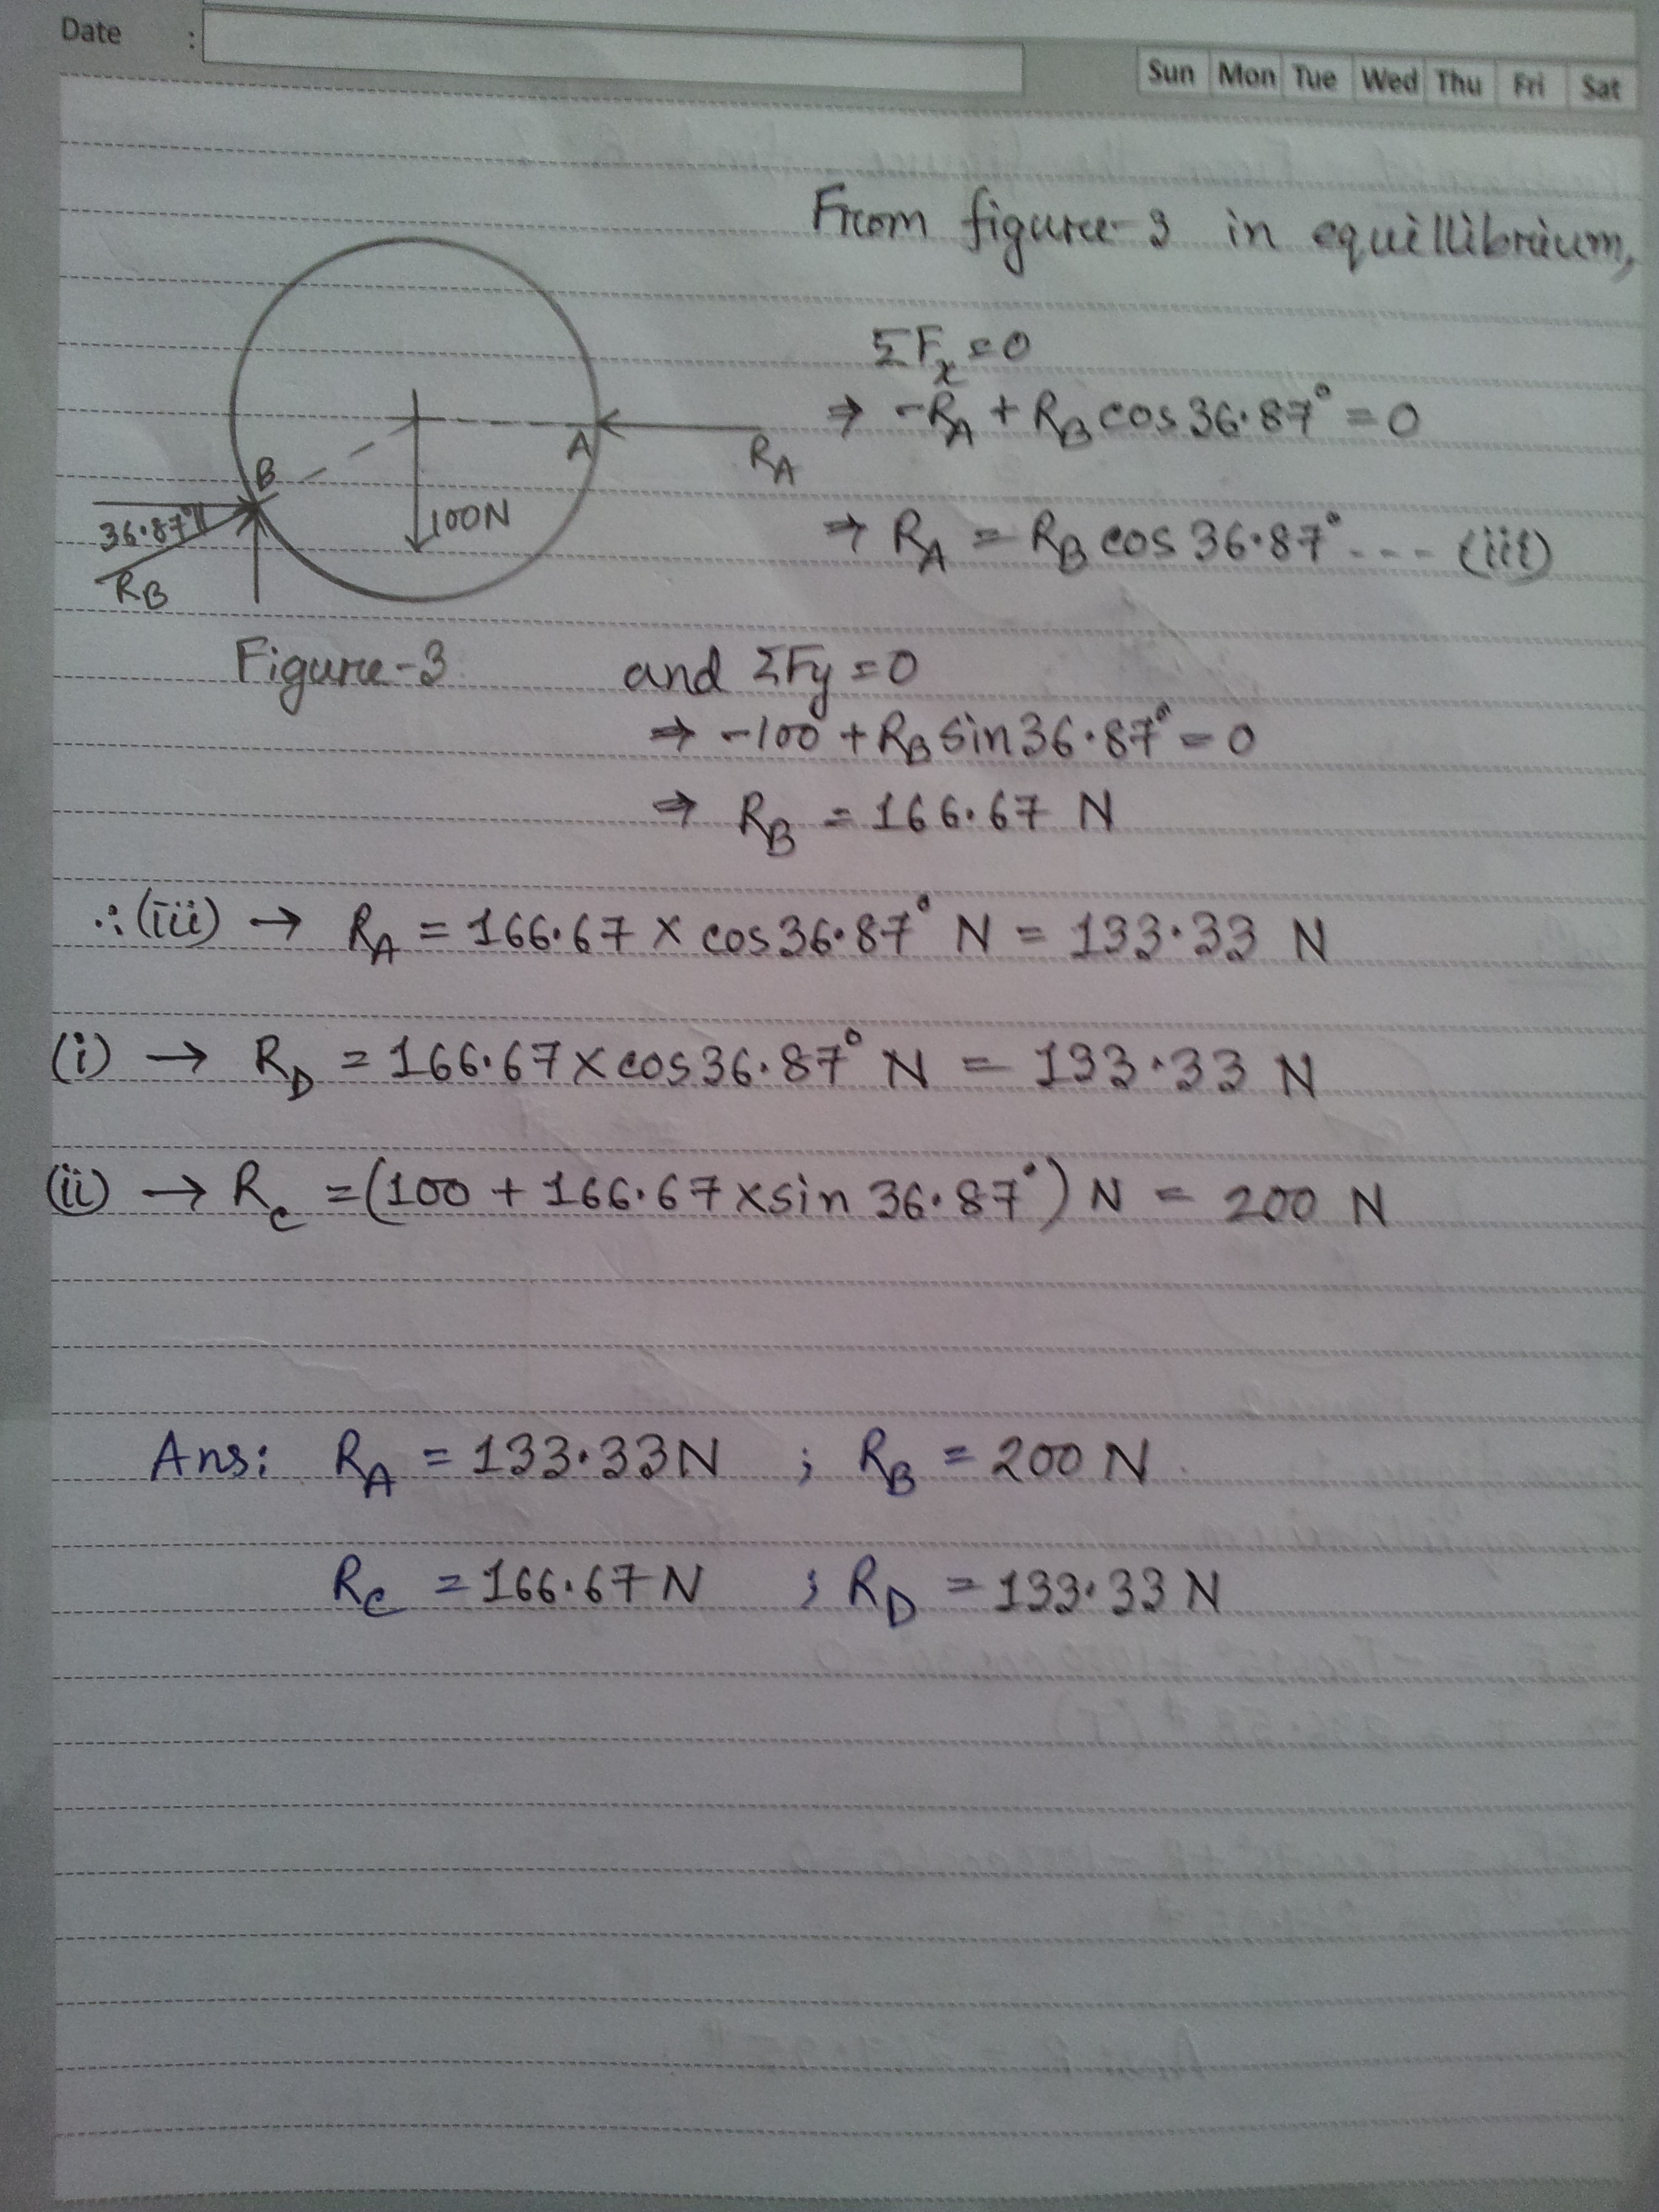 Date :
Sun Mon Tue Wed Thu Fri Sat
From figure-3 in equillibrium,
ΣFx = 0
⇒ -RA + RB cos 36.87° = 0
A
RA
B
36.87°
RB
100N
⇒ RA = RB cos 36.87° ---- (iii)
Figure-3
and ΣFy = 0
⇒ -100 + RB sin 36.87° = 0
⇒ RB = 166.67 N
∴ (iii) → RA = 166.67 × cos 36.87° N = 133.33 N
(i) → RD = 166.67 × cos 36.87° N = 133.33 N
(ii) → RC = (100 + 166.67 × sin 36.87°) N = 200 N
Ans: RA = 133.33 N ; RB = 200 N
RC = 166.67 N ; RD = 133.33 N